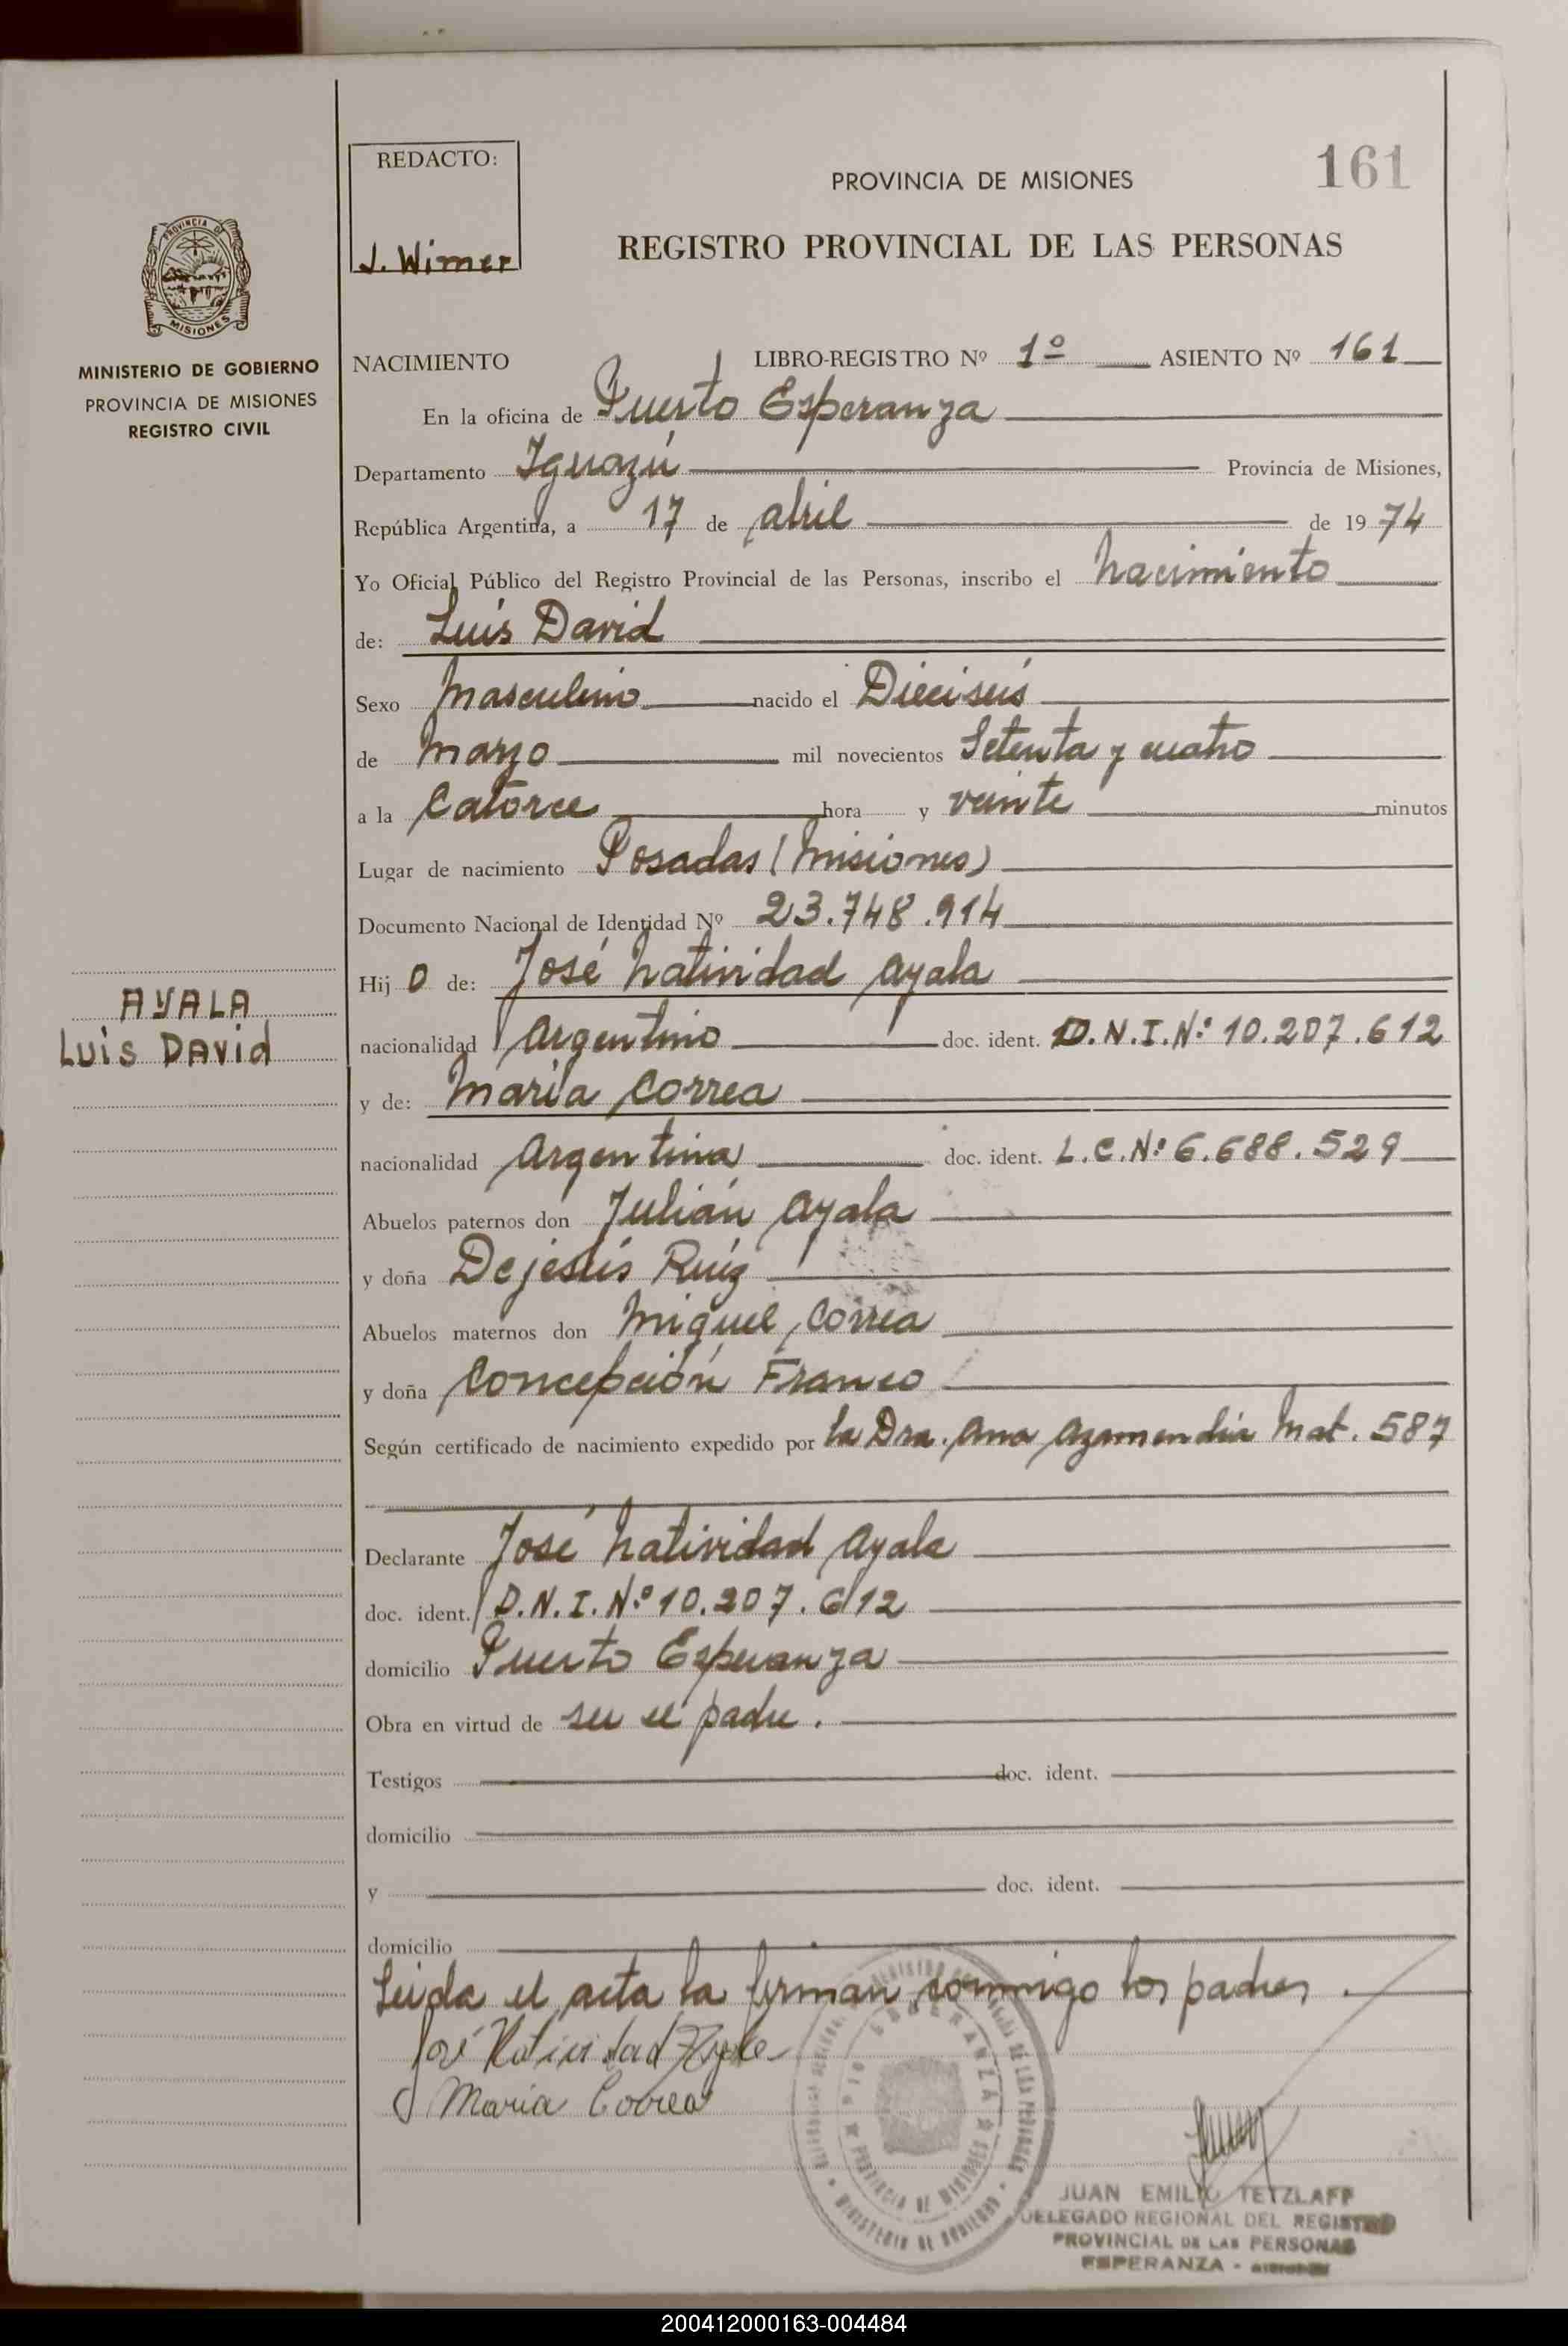 161
REDACTO:
J. Wimer
PROVINCIA DE MISIONES
REGISTRO PROVINCIAL DE LAS PERSONAS
PROVINCIA DE
MISIONES
MINISTERIO DE GOBIERNO
PROVINCIA DE MISIONES
REGISTRO CIVIL
NACIMIENTO LIBRO-REGISTRO Nº 1º ASIENTO Nº 161
En la oficina de Puerto Esperanza
Departamento Iguazú Provincia de Misiones,
República Argentina, a 17 de abril de 1974
Yo Oficial Público del Registro Provincial de las Personas, inscribo el nacimiento
de: Luis David
Sexo Masculino nacido el Dieciseís
de marzo mil novecientos Setenta y cuatro
a la Catorce hora y veinte minutos
Lugar de nacimiento Posadas (Misiones)
Documento Nacional de Identidad Nº 23.748.914
Hijo de: José Natividad Ayala
AYALA
Luis David
nacionalidad Argentino doc. ident. D.N.I.Nº 10.207.612
y de: María Correa
nacionalidad Argentina doc. ident. L.C.Nº 6.688.529
Abuelos paternos don Julián Ayala
y doña Dejesús Ruíz
Abuelos maternos don Miguel Correa
y doña Concepción Franco
Según certificado de nacimiento expedido por la Dra. Ana Mat. 587
Declarante José Natividad Ayala
doc. ident. D.N.I.Nº 10.207.612
domicilio Puerto Esperanza
Obra en virtud de ser el padre.
Testigos doc. ident.
domicilio
y doc. ident.
domicilio
Leida el acta la firman conmigo los padres.
José Natividad Ayala
María Correa
MINISTERIO DE GOBIERNO
PROVINCIA DE MISIONES
JUAN EMILIO TETZLAFF
DELEGADO REGIONAL DEL REGISTRO
PROVINCIAL DE LAS PERSONAS
ESPERANZA -
200412000163-004484